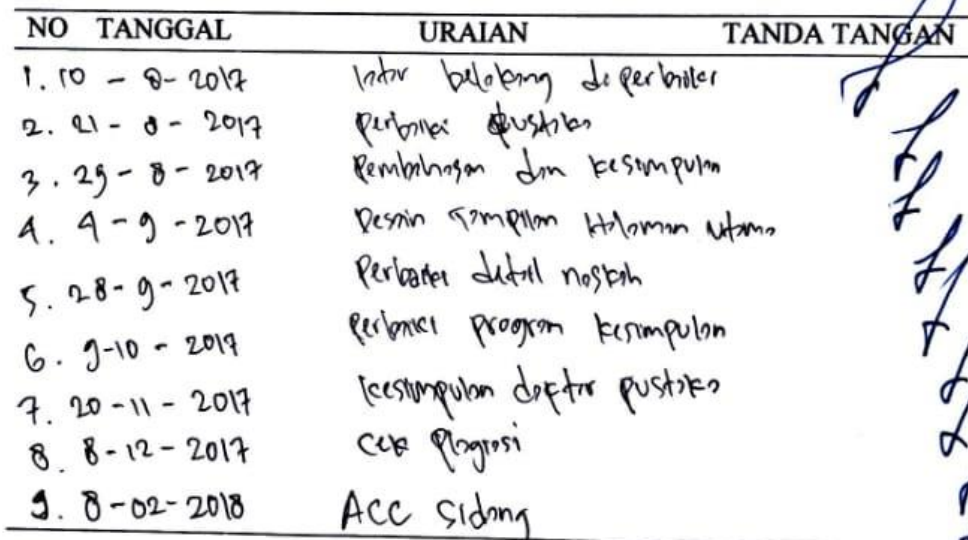 NO TANGGAL URAIAN TANDA TANGAN
1. 10 - 8 - 2017 latar belakang diperbaiki
2. 21 - 8 - 2017 perbaiki pustaka
3. 29 - 8 - 2017 Pembahasan dan kesimpulan
4. 4 - 9 - 2017 Desain Tampilan Halaman utama
5. 28 - 9 - 2017 Perbaiki detail naskah
6. 9-10 - 2017 Perbaiki program kesimpulan
7. 20 -11 - 2017 kesimpulan daftar pustaka
8. 8 - 12 - 2017 cek Plagiasi
9. 8 - 02 - 2018 ACC Sidang